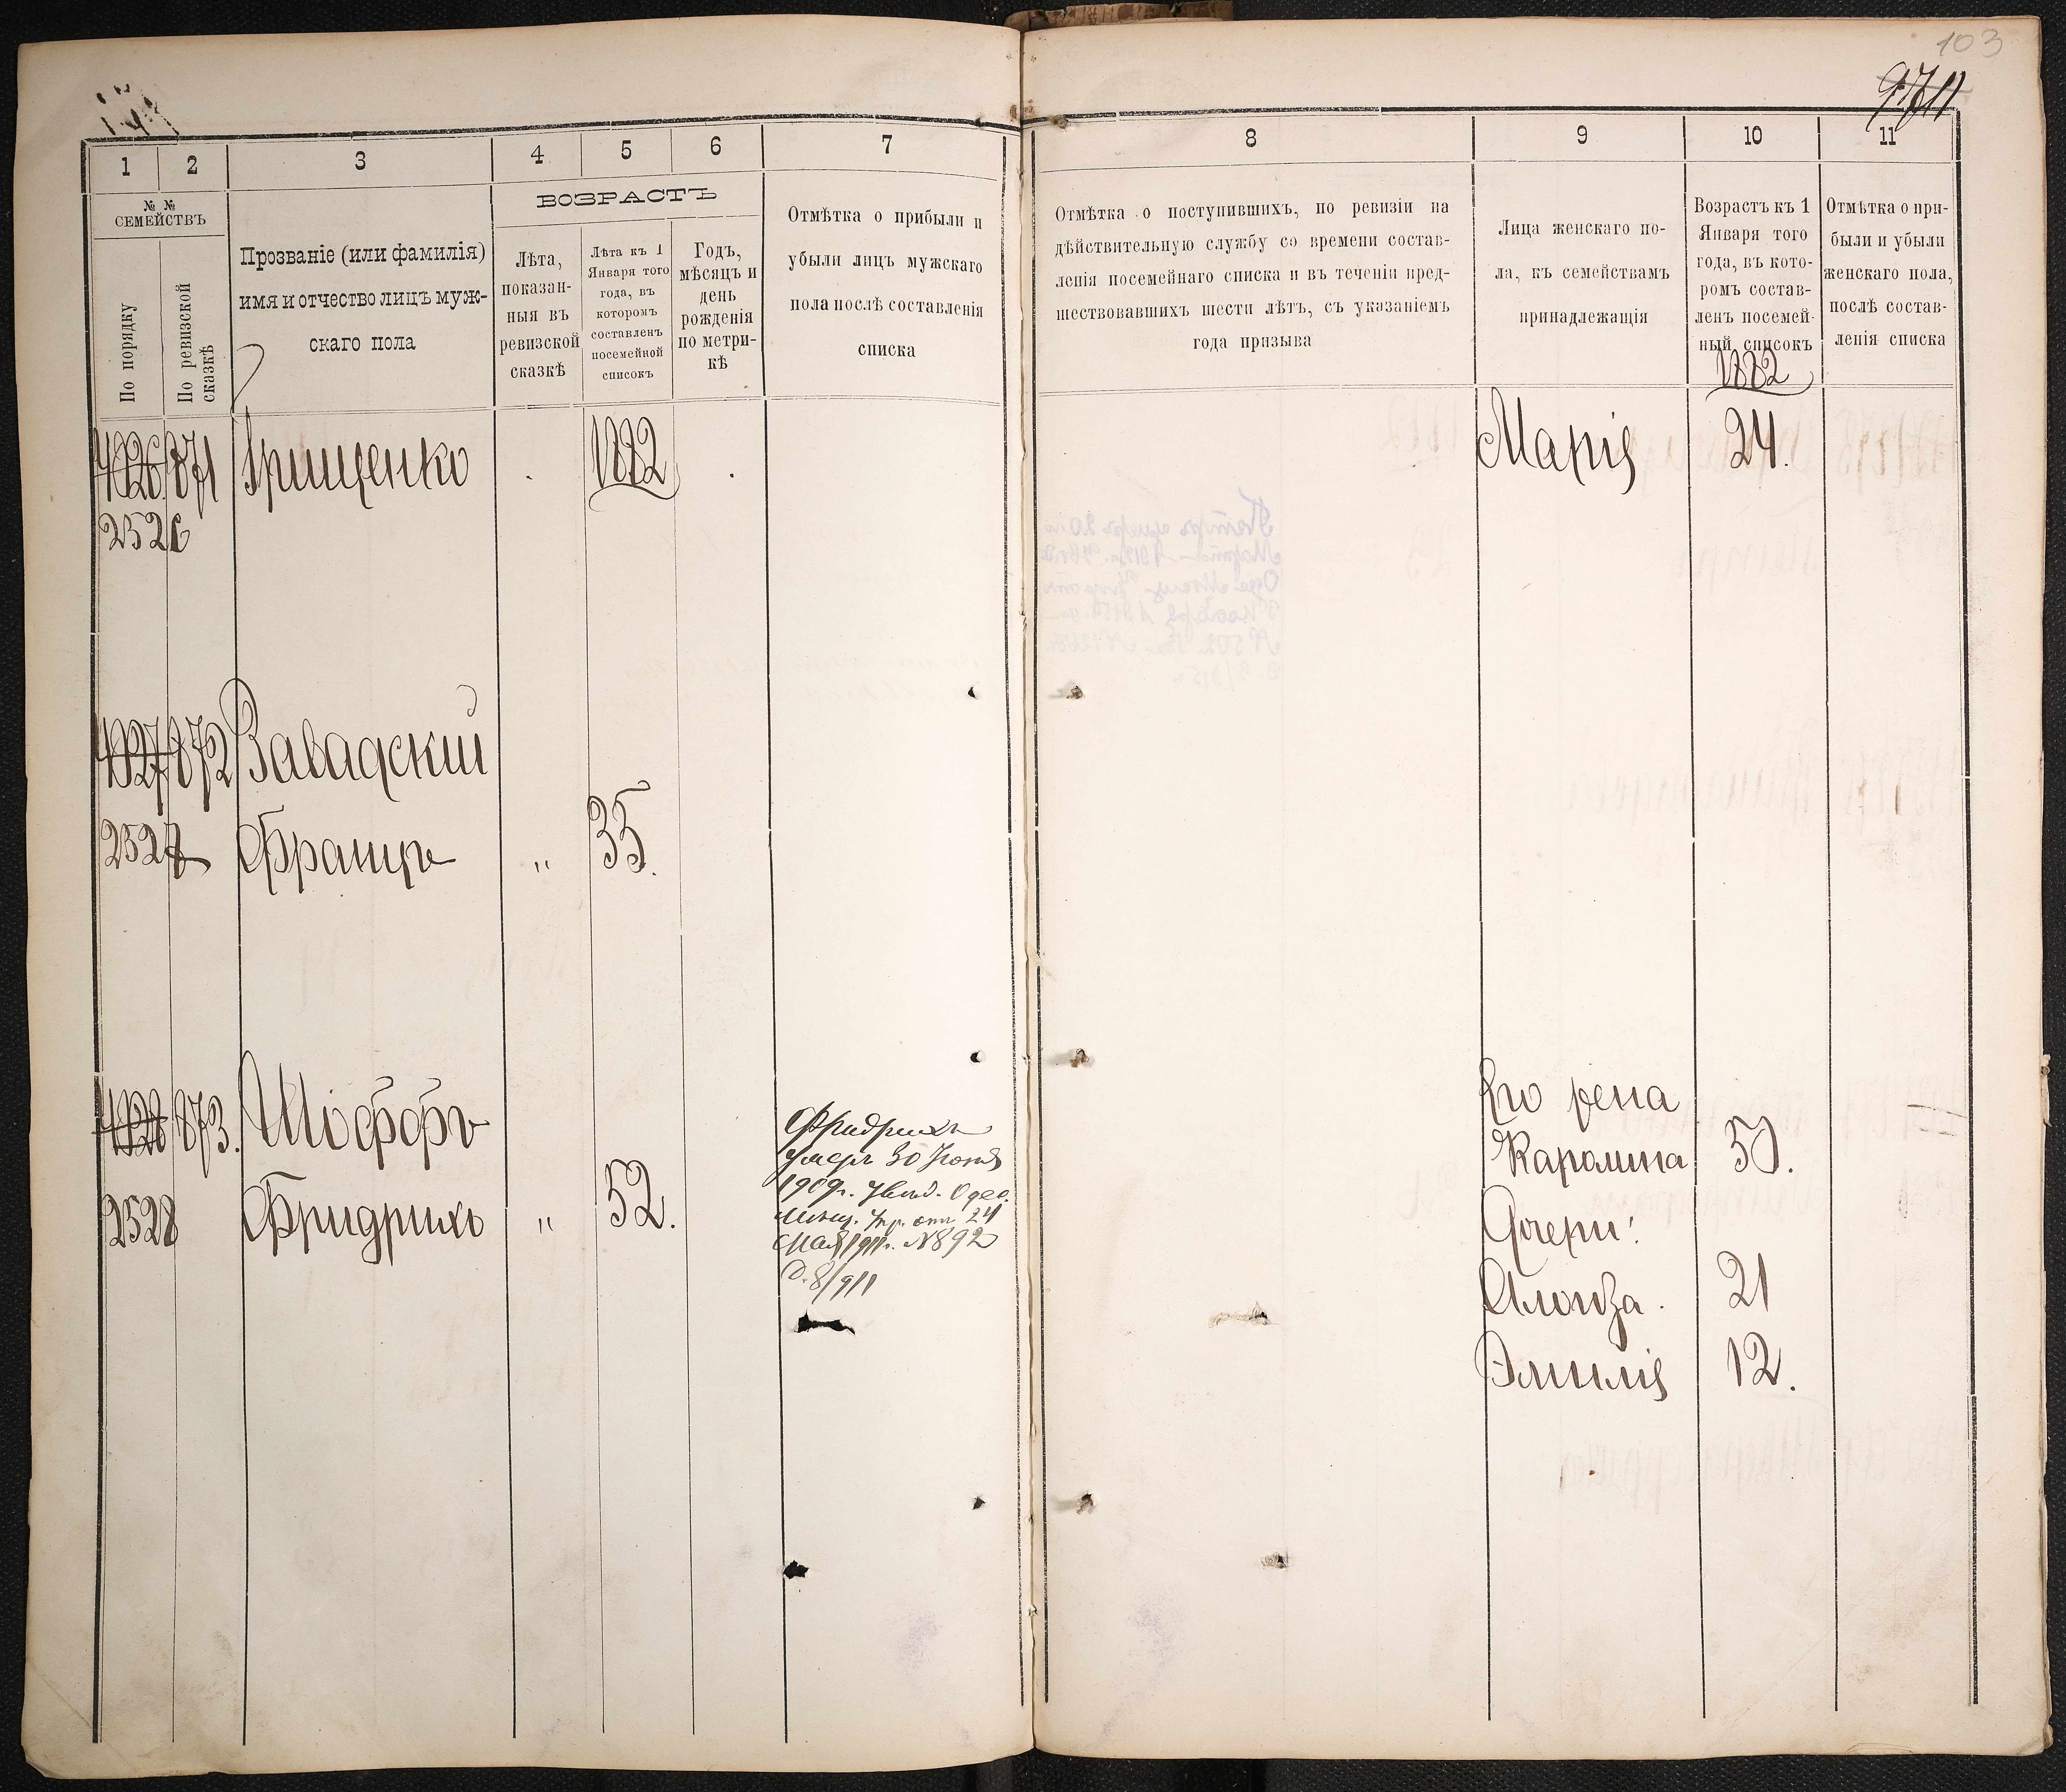 103
1 2 3 4 5 6 7
№ №
СЕМЕЙСТВЪ
По порядку
По ревизской
сказкѣ
Прозваніе (или фамилія)
имя и отчество лицъ муж-
скаго пола
ВОЗРАСТЪ
Лѣта,
показан-
ныя въ
ревизской
сказкѣ
Лѣта къ 1
Января того
года, въ
которомъ
составленъ
посемейной
списокъ
Годъ,
мѣсяцъ и
день
рожденія
по метри-
кѣ
Отмѣтка о прибыли и
убыли лицъ мужскаго
пола послѣ составленія
списка
8 9 10 11
Отмѣтка о поступившихъ, по ревизіи на
дѣйствительную службу со времени состав-
ленія посемейнаго списка и въ теченіи пред-
шествовавшихъ шести лѣтъ, съ указаніемъ
года призыва
Лица женскаго по-
ла, къ семействамъ
принадлежащія
Возрастъ къ 1
Января того
года, въ кото-
ромъ состав-
ленъ посемей-
ный списокъ
1882
Отмѣтка о при-
были и убыли
женскаго пола,
послѣ состав-
ленія списка
4826 871 Грищенко 1882 Марія 24.
2526
4827 872 Завадскій
2527 Францъ „ 35.
4828 873. Шофферъ
2528 Фридрихъ „ 52.
Фридрихъ
умеръ 30 Іюня
1909г. Увѣд. Одес.
Мѣщ. Упр. отъ 24
Мая 1911г. №892
Д. 8/911
Его жена
Каролина 50.
Дочери:
Алоиза. 21
Эмилія 12.